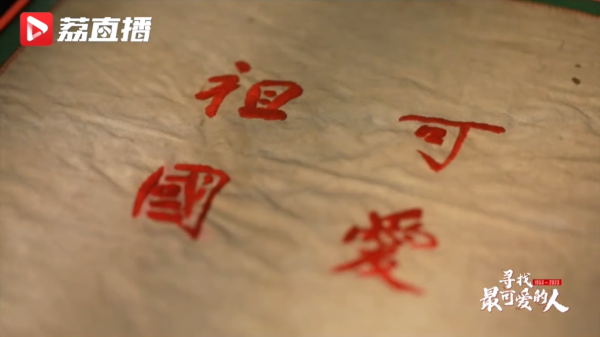 荔直播
可愛
祖國
寻找
最可爱的人